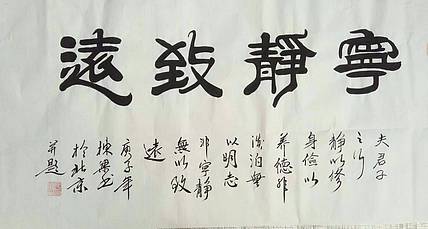 寧靜致遠
夫君子
之行
靜以修
身儉以
养德非
淡泊無
以明志
非寧靜
無以致
遠
庚子年
於北京
并題